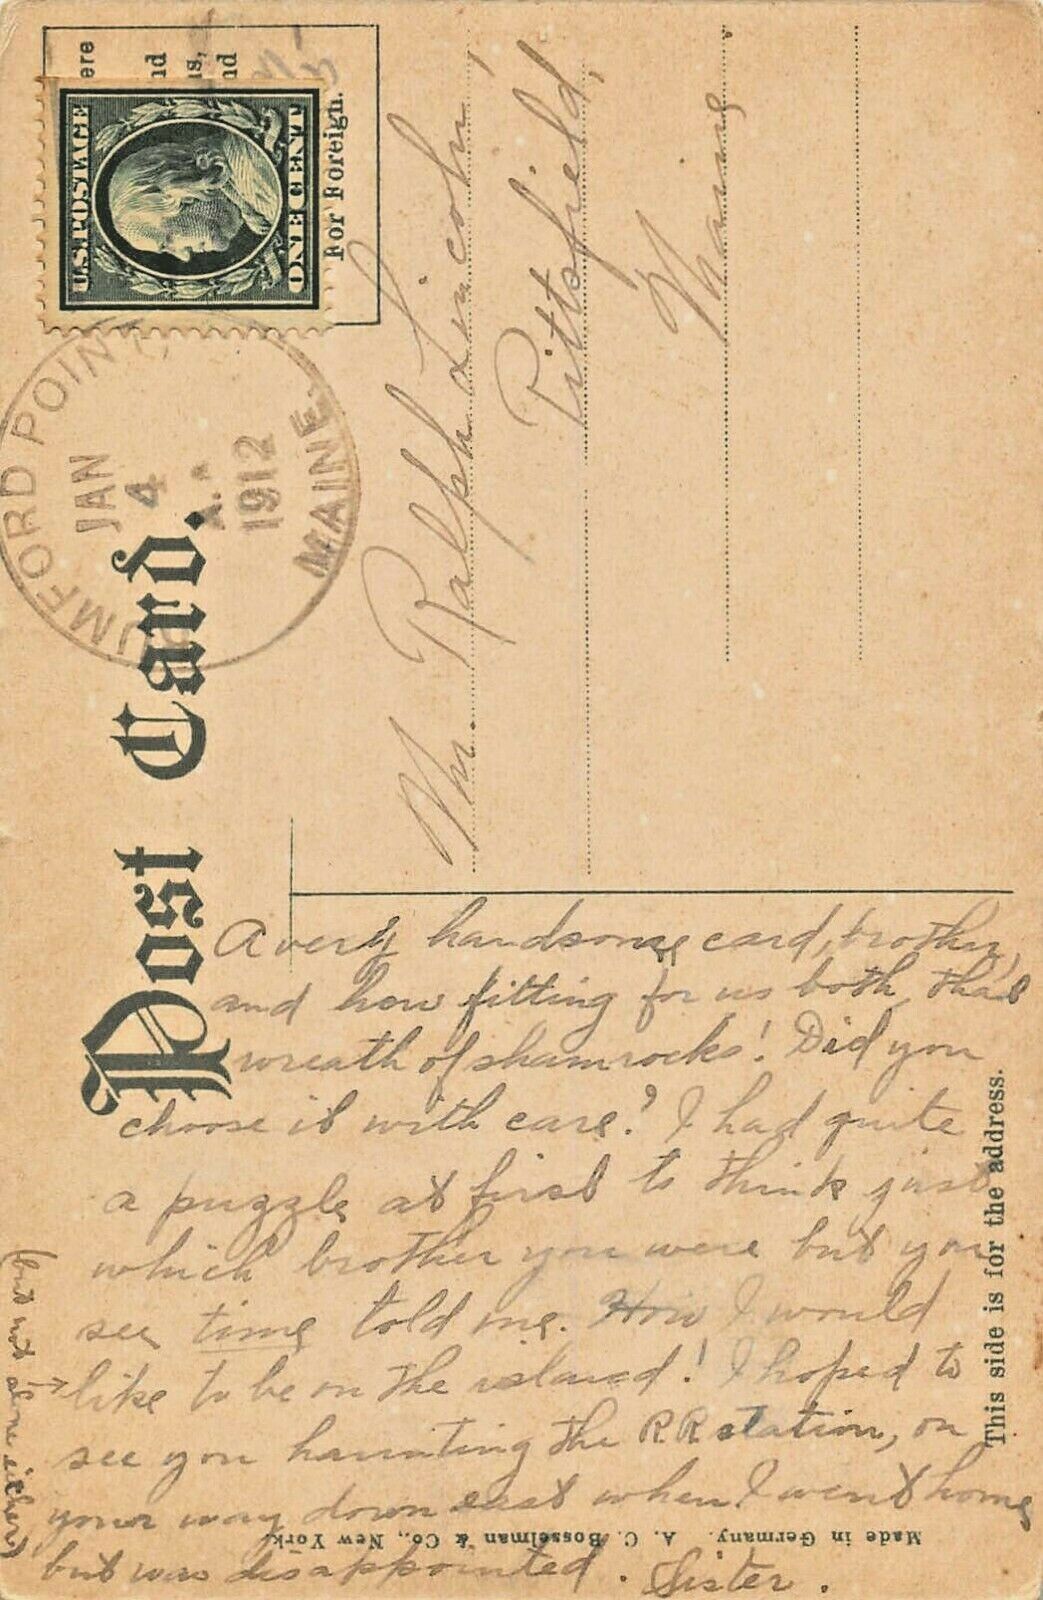 Post Card.
ere
nd
us,
nd
For Foreign.
U.S. POSTAGE
ONE CENT
UMFORD POINT
JAN
4
A.
1912
MAINE.
Mr. Ralph Lincoln
Pittsfield,
Maine
A very handsome card, brother,
and how fitting for us both, that
wreath of shamrocks! Did you
choose it with care? I had quite
a puzzle at first to think just
which brother you were but you
see time told me. How I would
like to be on the island! I hoped to
see you haunting the RR station, on
your way down east when I went home
but was disappointed. Sister.
(but not alone either)
This side is for the address.
Made in Germany. A. C. Bosselman & Co., New York.